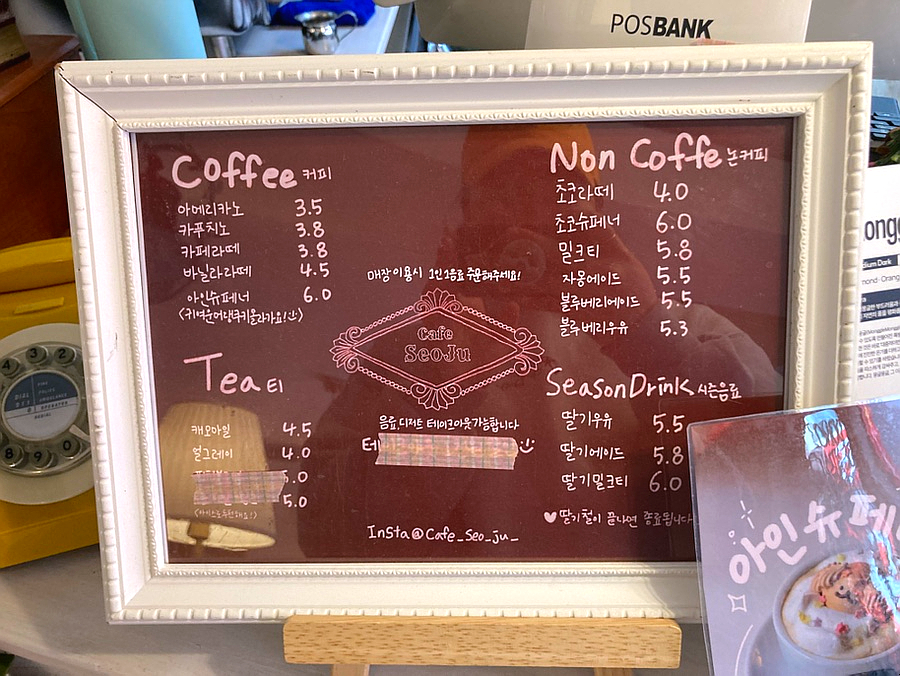 POSBANK
Coffee 커피
아메리카노 3.5
카푸치노 3.8
카페라떼 3.8
바닐라라떼 4.5
아인슈페너 6.0
Tea 티
캐모마일 4.5
얼그레이 4.0
5.0
5.0
매장이용시 1인 1음료 주문해주세요!
Cafe
SeoJu
음료, 디저트 테이크아웃가능합니다
테
Insta@Cafe_Seo_ju_
Non Coffe 논커피
초코라떼 4.0
초코슈페너 6.0
밀크티 5.8
자몽에이드 5.5
블루베리에이드 5.5
블루베리우유 5.3
SeasonDrink 시즌음료
딸기우유 5.5
딸기에이드 5.8
딸기밀크티 6.0
딸기철이 끝나면 종료됩니다
아인슈페